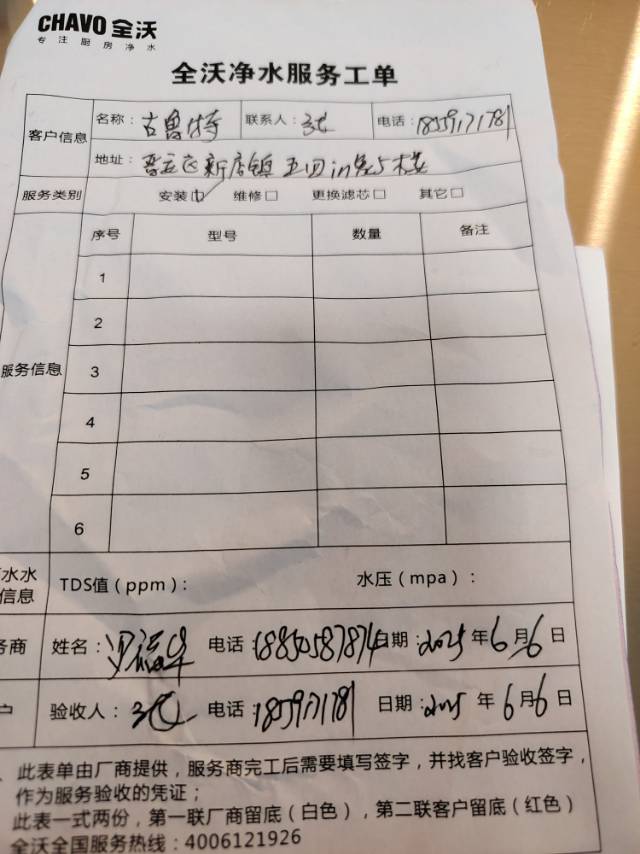 CHAVO 全沃
专注厨房净水
全沃净水服务工单
客户信息
名称：古鲁特 联系人： 电话：18559171781
地址：晋江区新店镇
服务类别 安装☑ 维修□ 更换滤芯□ 其它□
服务信息
序号 型号 数量 备注
1
2
3
4
5
6
水水
信息
TDS值（ppm）： 水压（mpa）：
务商 姓名： 电话：18850587874 日期：2025年6月6日
户 验收人： 电话：18559171781 日期：2025年6月6日
、此表单由厂商提供，服务商完工后需要填写签字，并找客户验收签字，
作为服务验收的凭证；
此表一式两份，第一联厂商留底（白色），第二联客户留底（红色）
全沃全国服务热线：4006121926